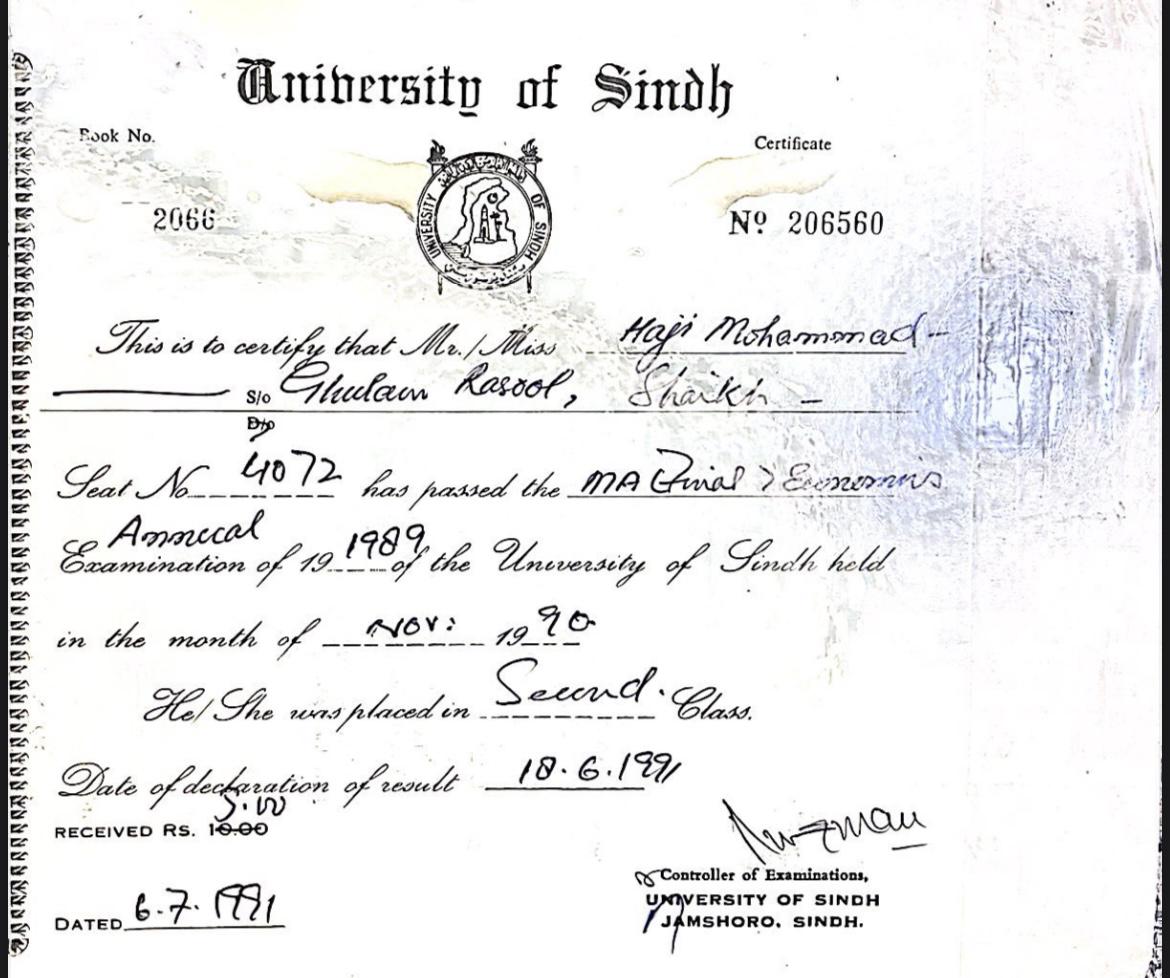 University of Sindh
Book No.
Certificate
2066
Nº 206560
UNIVERSITY OF SINDH
This is to certify that Mr./Miss Haji Mohammad
S/o Ghulam Rasool, Shaikh
D/o
Seat No. 4072 has passed the MA (Final) Economics
Annual
Examination of 19 1989 of the University of Sindh held
in the month of Nov: 1990
He/She was placed in Second. Class.
Date of declaration of result 18.6.1991
5.00
RECEIVED RS. 10.00
Controller of Examinations,
UNIVERSITY OF SINDH
JAMSHORO, SINDH.
DATED 6.7.1991